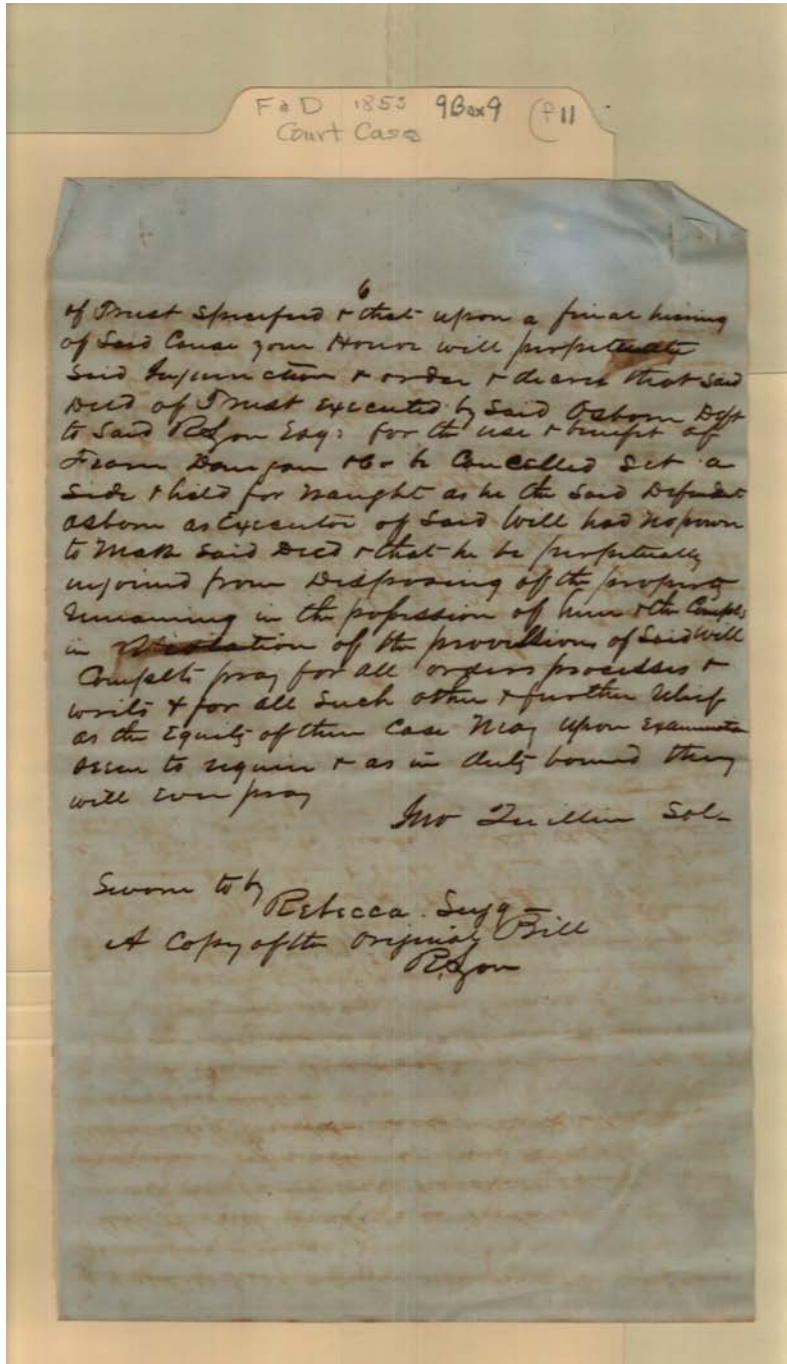 F & D 1853 9Box9 (f 11
Court Case
6
of Trust Specified & that upon a final hearing
of Said Cause your Honor will perpetuate
Said Injunction & order & decree that Said
Deed of Trust Executed by Said Osborn Deft
to Said R Lyon Esq: for the use & benefit of
& Co be Cancelled Set a
Side & held for Naught as he the Said Defendant
Osborn as Executor of Said Will had no power
to Make Said Deed & that he be perpetually
injoined from Disposing of the property
remaining in the possession of him & the Complts
in Violation of the provissions of Said Will
Complts pray for all orders processes &
writs & for all Such other & further Relief
as the Equity of their Case May upon Examination
seem to require & as in duty bound they
will Ever pray
Jno Quillin Sol-
Sworn to by
Rebecca Sugg
A Copy of the Original Bill
R. Lyon